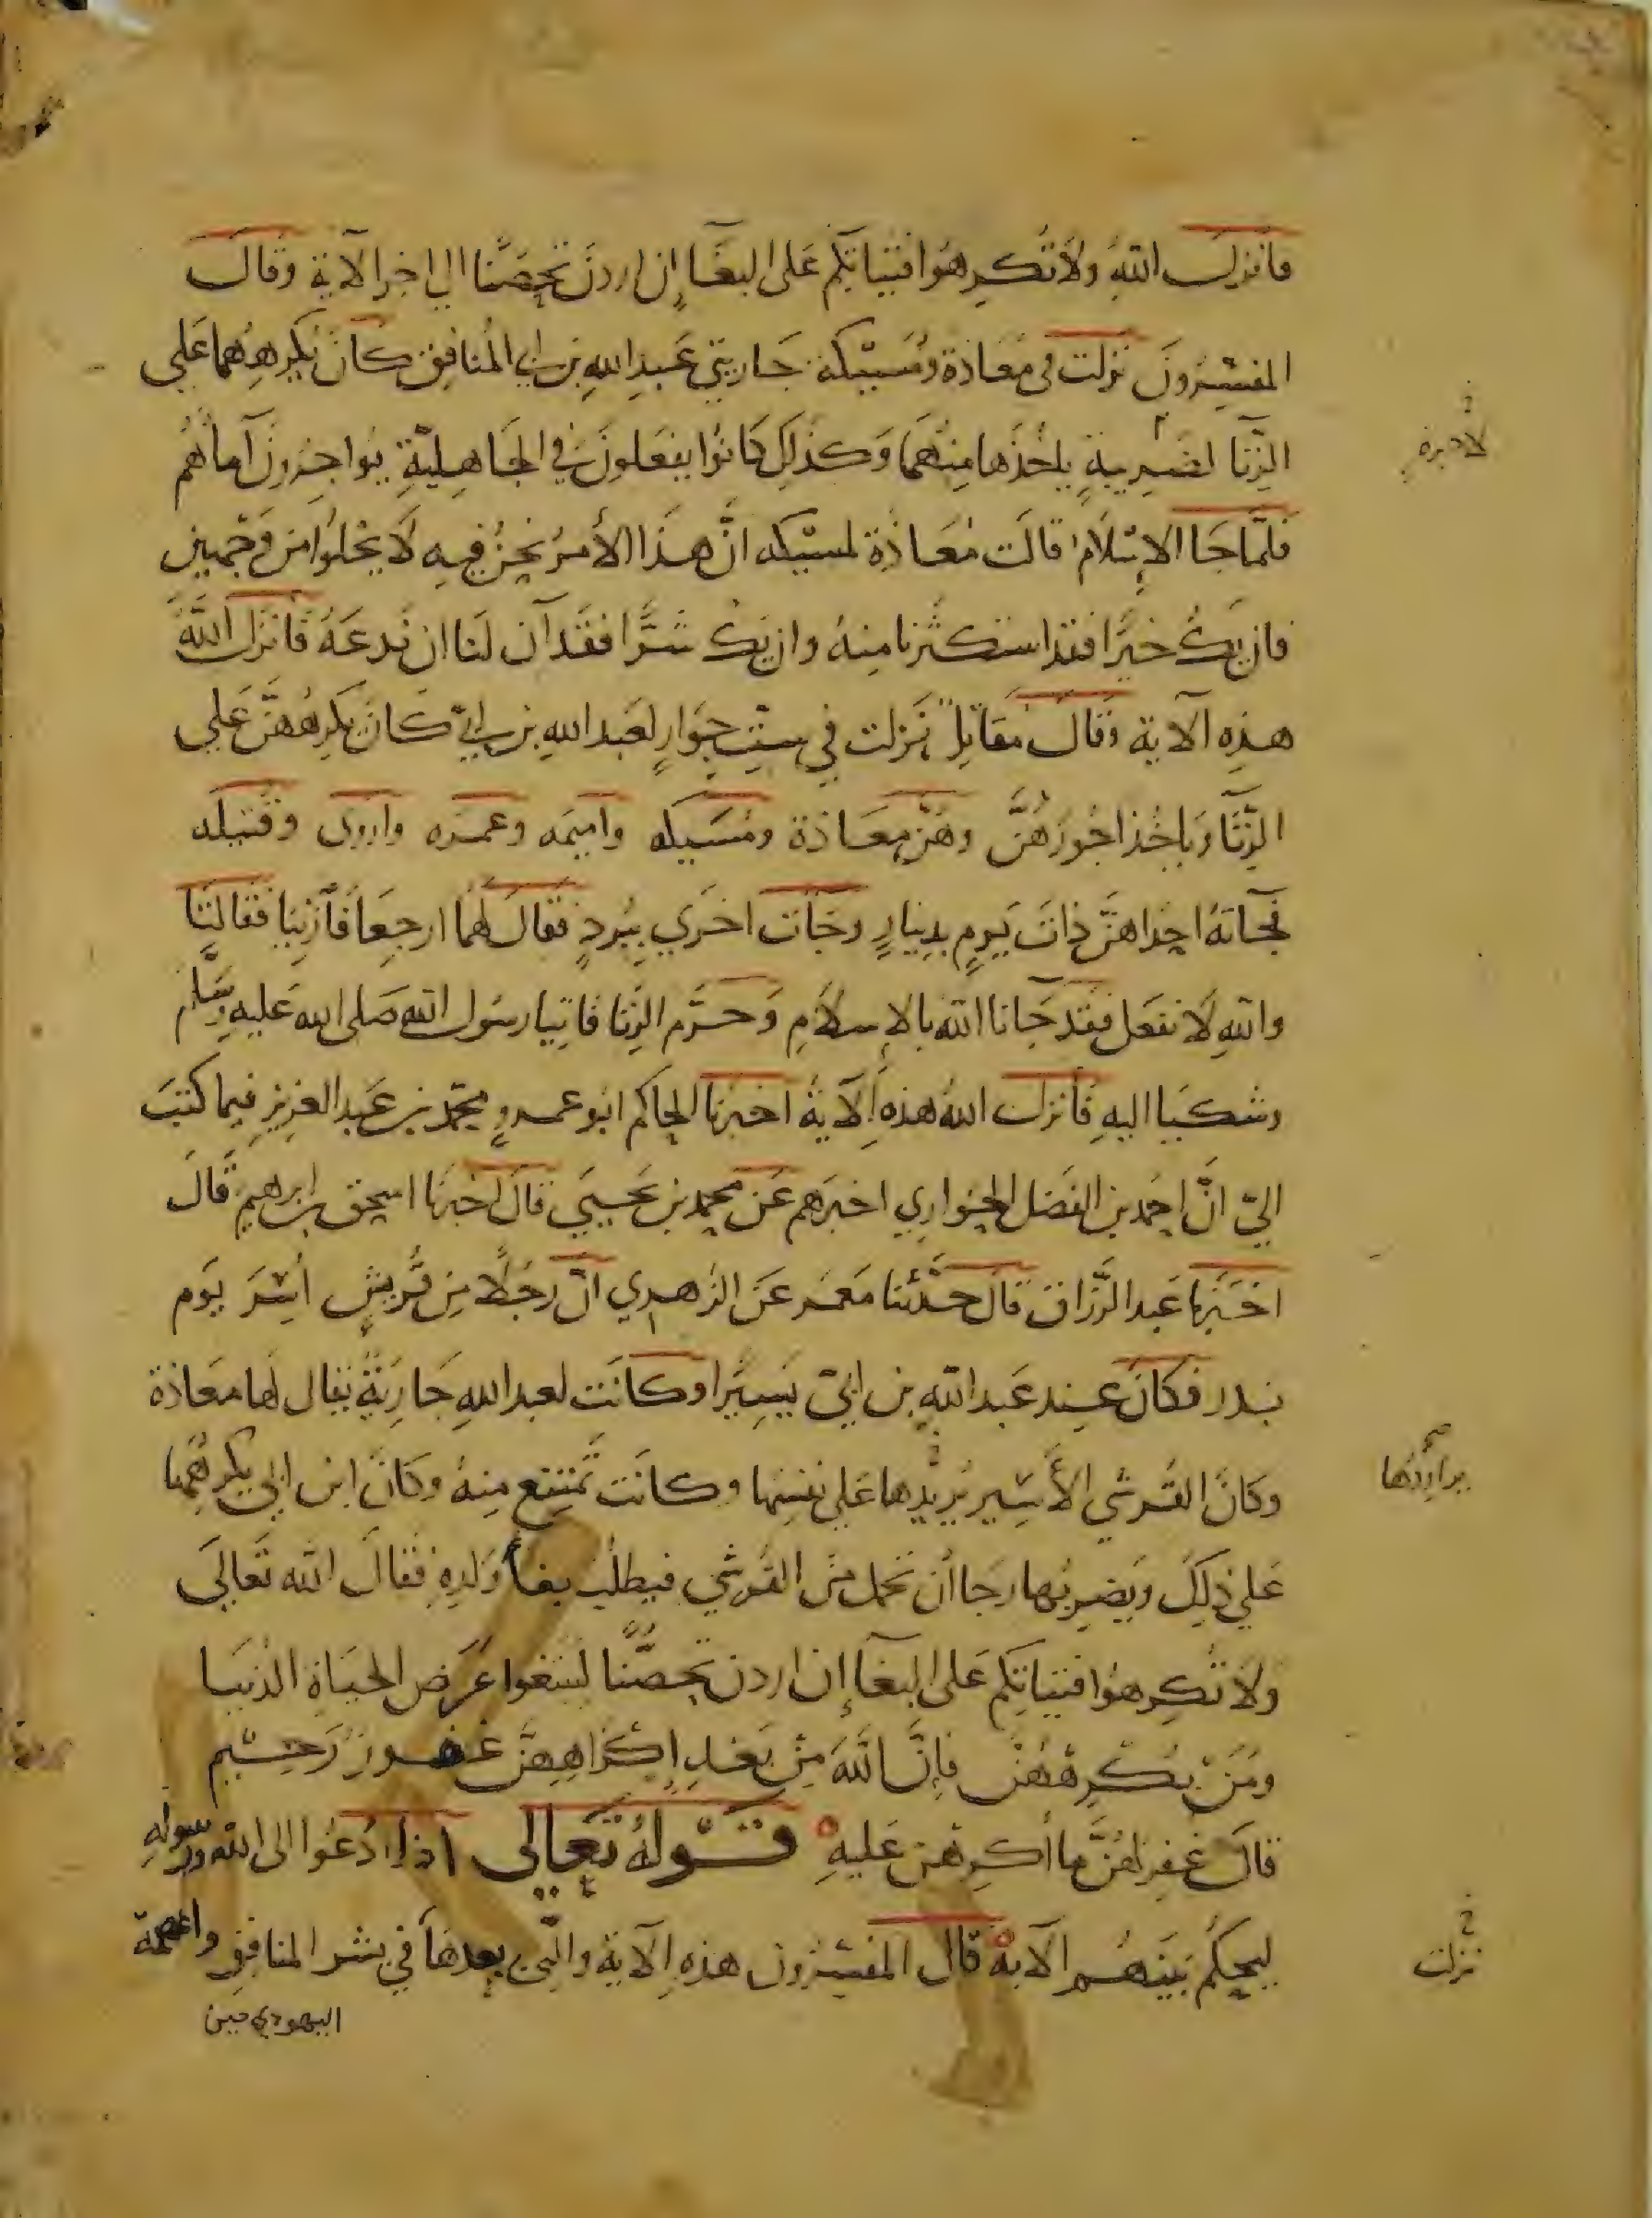 فانزل الله ولا تكرهوا فتياتكم على البغا إن اردن تحصنا الي اخر الآية وقال
المفسرون نزلت في معاذة ومسيكة جاريتي عبد الله بن ابي المنافق كان يكرههما علي
الزنا لضريبة ياخذها منهما وكذلك كانوا يفعلون في الجاهلية يواجرون آماهم
فلما جا الإسلام قالت معاذة لمسيكه ان هذا الأمر نحن فيه لا يخلوا من وجهين
فان يك خيرا فقد استكثرنا منه وان يك شرا فقد آن لنا ان ندعه فانزل الله
هذه الآية وقال مقاتل نزلت في ست جوار لعبد الله بن ابي كان يكرههن علي
الزنا وياخذ اجورهن وهن معاذة ومسيكه واميمه وعمره واروى وقتيله
فجاته احداهن ذات يوم بدينار وجات اخري ببرد فقال لهما ارجعا فازنيا فقالتا
والله لا نفعل فقد جانا الله بالاسلام وحرم الزنا فاتيا رسول الله صلى الله عليه وسلم
وشكيا اليه فانزل الله هذه الآية اخبرنا الحاكم ابو عمرو محمد بن عبد العزيز فيما كتب
الي ان احمد بن الفضل الحواري اخبرهم عن محمد بن يحيي قال اخبرنا اسحق بن ابرهيم قال
اخبرنا عبد الرزاق قال حدثنا معمر عن الزهري ان رجلا من قريش أسر يوم
بدر فكان عند عبد الله بن ابي يسيرا وكانت لعبد الله جارية يقال لها معاذة
وكان القرشي الأسير يريدها علي نفسها وكانت تمتنع منه وكان ابن ابي يكرهها
علي ذلك ويضربها رجا أن تحمل من القرشي فيطلب بغا ولده فقال الله تعالي
ولا تكرهوا فتياتكم على البغآ إن اردن تحصنا لتبتغوا عرض الحياة الدنيا
ومن يكرههن فإن الله من بعد إكراههن غفور رحيم
قال غفر لهن ما أكرهن عليه قوله تعالى اذا دعوا الى الله ورسوله
ليحكم بينهم الآية قال المفسرون هذه الآية والتي بعدها في بشر المنافق واخصمة
اليهودي حين
نزلت